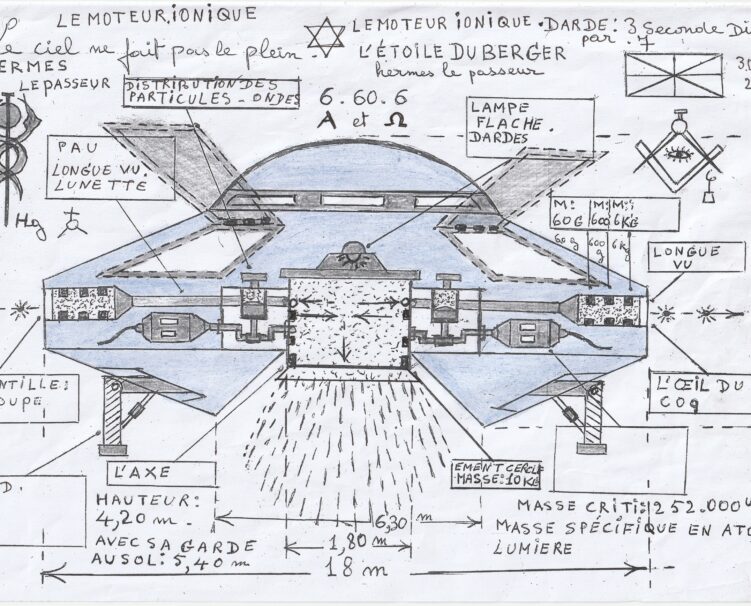 LE MOTEUR, IONIQUE
ciel ne fait pas le plein.
HERMES
LE PASSEUR
LE MOTEUR IONIQUE.
L'ÉTOILE DU BERGER
hermes le passeur
DARDE: 3 Seconde Di
par: 7
DISTRIBUTION DES
PARTICULES - ONDES
6.60.6
A et Ω
LAMPE
FLACHE.
DARDES
PAU
LONGUE VU.
LUNETTE
Hg
M: M: M:
60G 600 6KG
60g 600 g 6kg
G
LONGUE
VU
L'ŒIL DU
COq
L'AXE
EMENT CERCLE
MASSE: 10KG
HAUTEUR:
4,20 m.
AVEC SA GARDE
AU SOL: 5,40 m
6,30 m
1,80 m
18 m
MASSE CRITI: 252.000
MASSE SPÉCIFIQUE EN ATO
LUMIERE